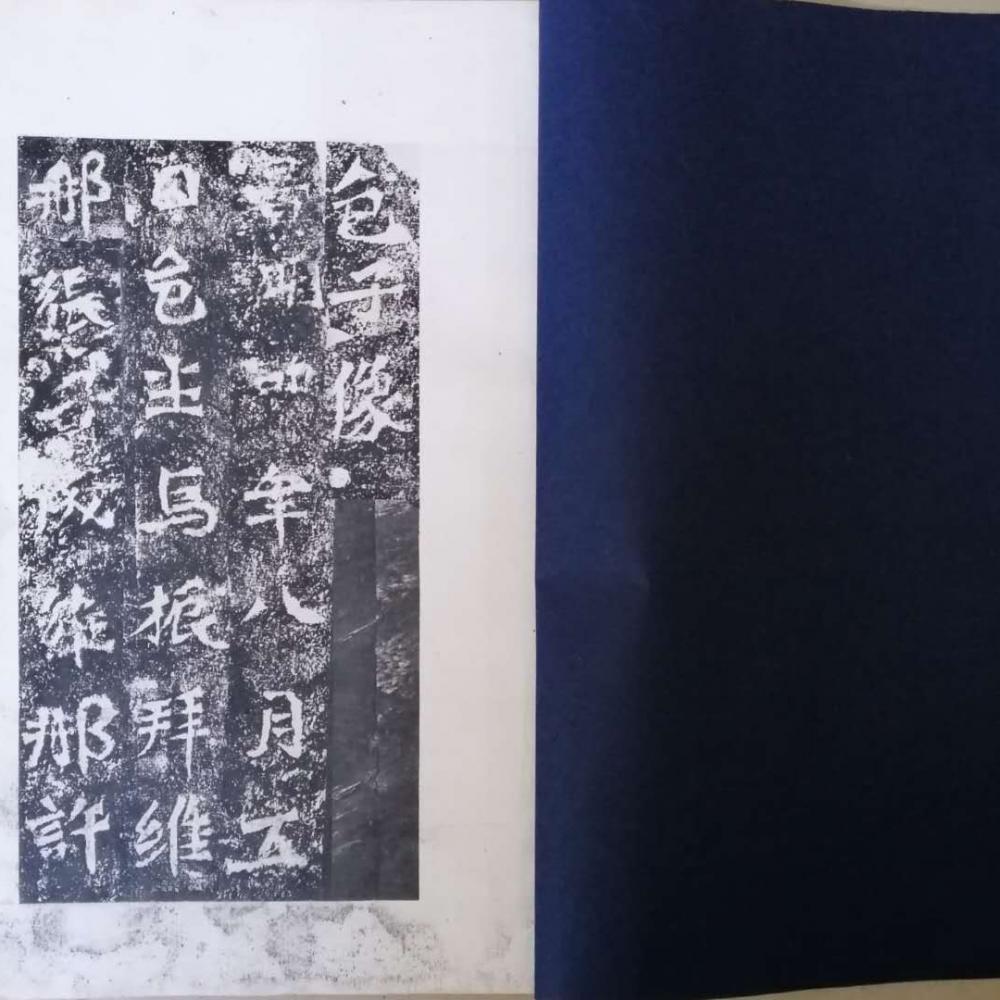 邑子像
景明四年八月五
日邑主馬振拜維
那張子成維那許